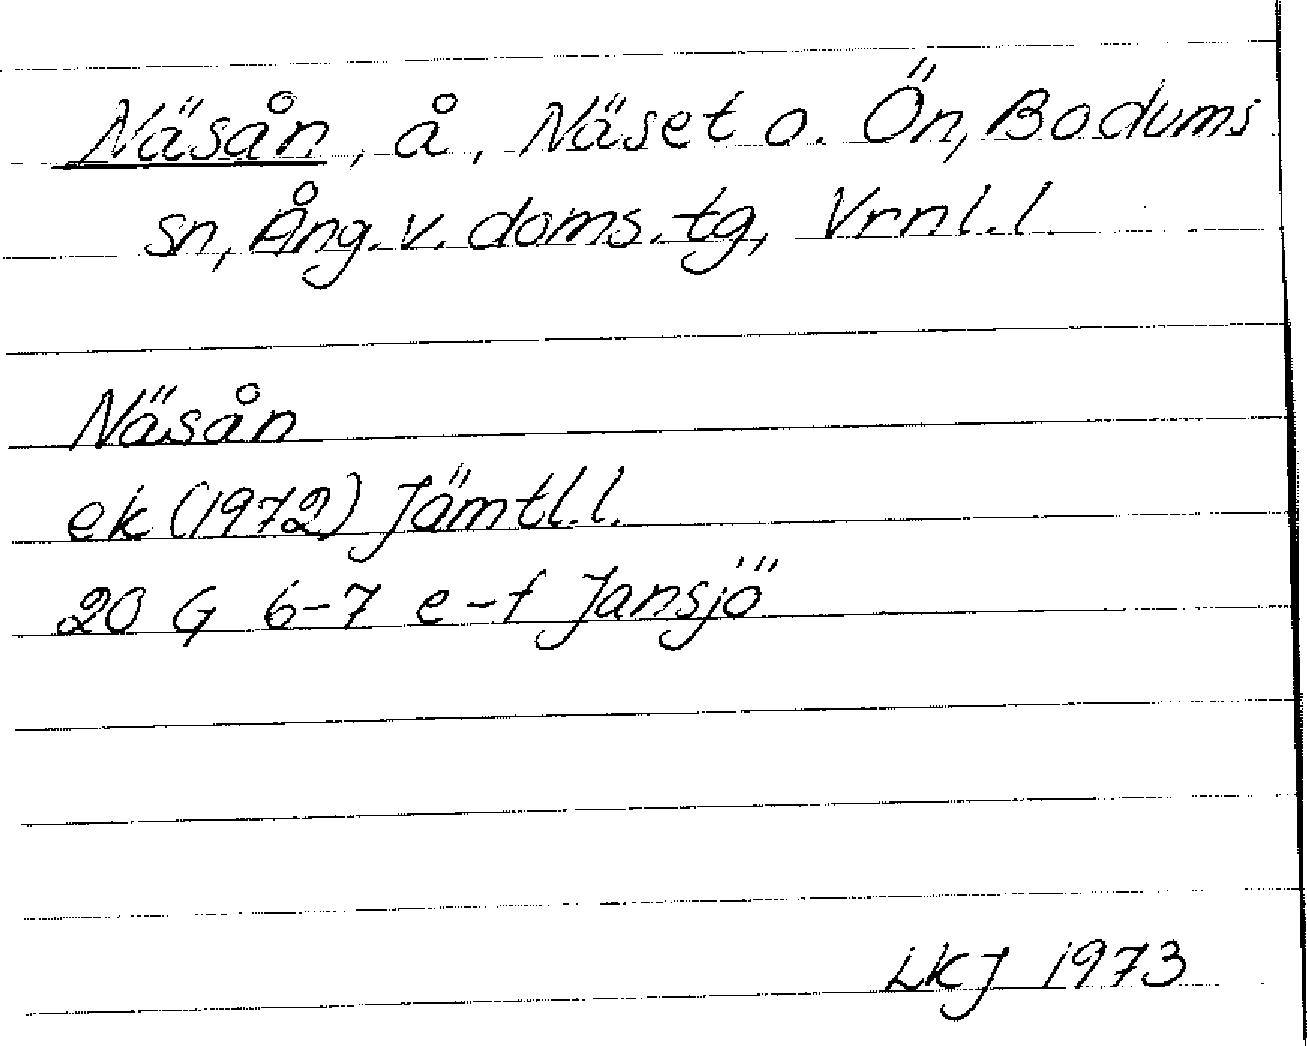 Näsån, å, Näset o. Ön, Bodums
sn, Ång. v. doms. tg, Vrnl. l.
Näsån
ek (1972) Jämtl. l.
20 G 6-7 e-f Jansjö
LKJ 1973